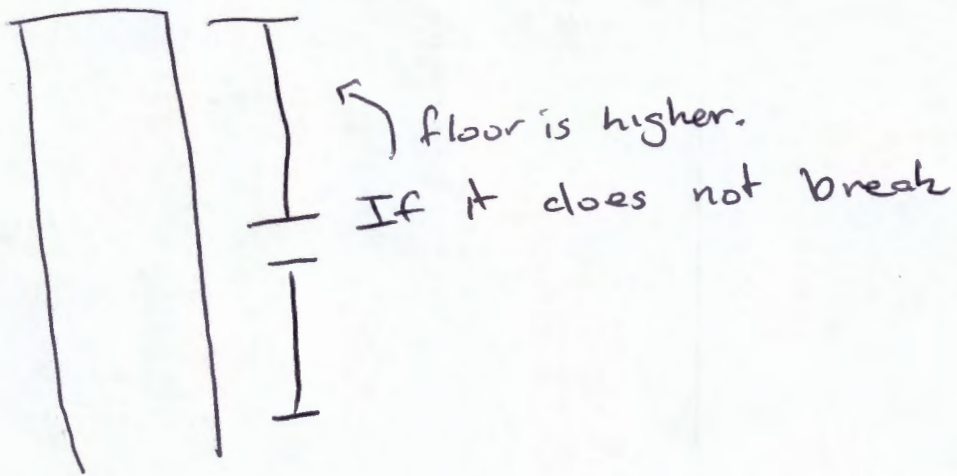 floor is higher.
If it does not break